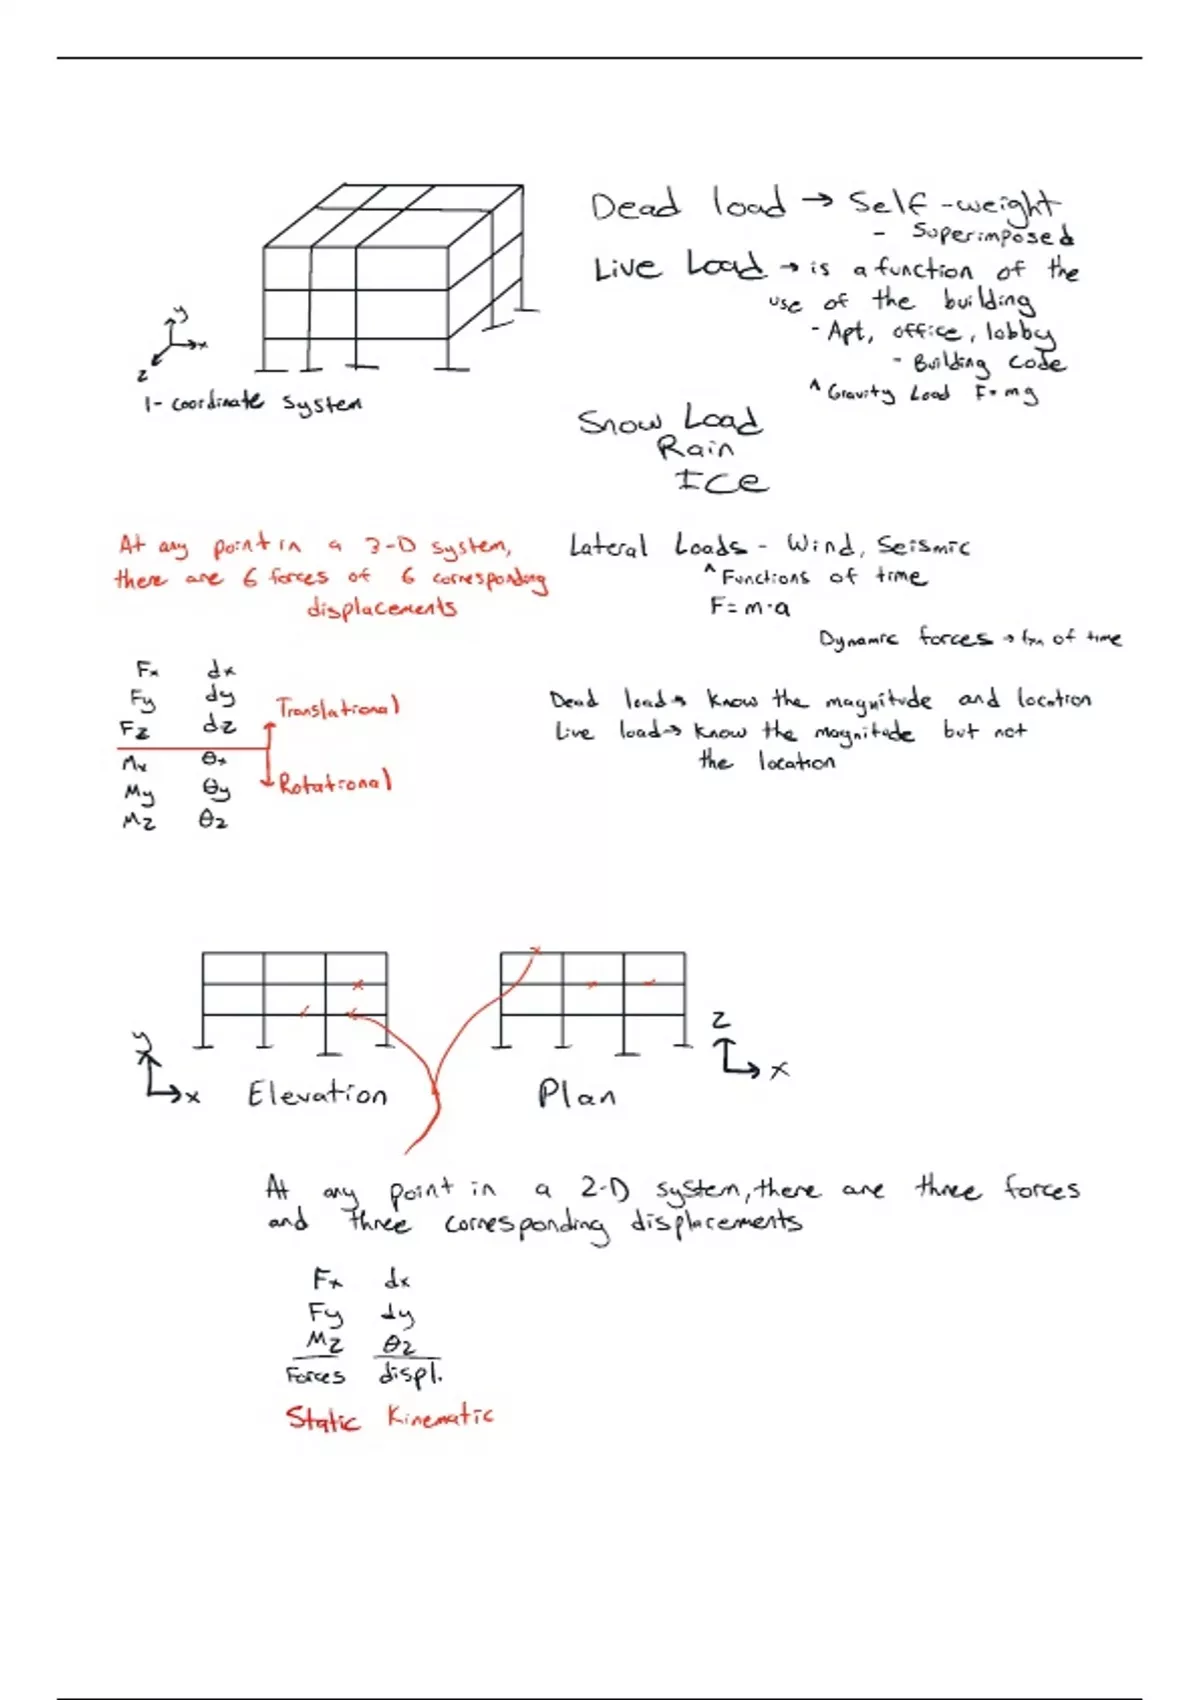 Dead load → Self-weight
- Superimposed
Live Load → is a function of the
use of the building
- Apt, office, lobby
- Building code
^ Gravity Load F=mg
y
x
z
1- coordinate system
Snow Load
Rain
ICe
At any point in a 3-D system,
there are 6 forces of 6 corresponding
displacements
Lateral Loads - Wind, Seismic
^ Functions of time
F=m·a
Dynamic forces → fxn of time
Fx dx
Fy dy
Fz dz
Translational
Mx θx
My θy
Mz θz
Rotational
Dead load → Know the magnitude and location
Live load → Know the magnitude but not
the location
y
x
Elevation
Plan
z
x
At any point in a 2-D system, there are three forces
and three corresponding displacements
Fx dx
Fy dy
Mz θz
Forces displ.
Static Kinematic